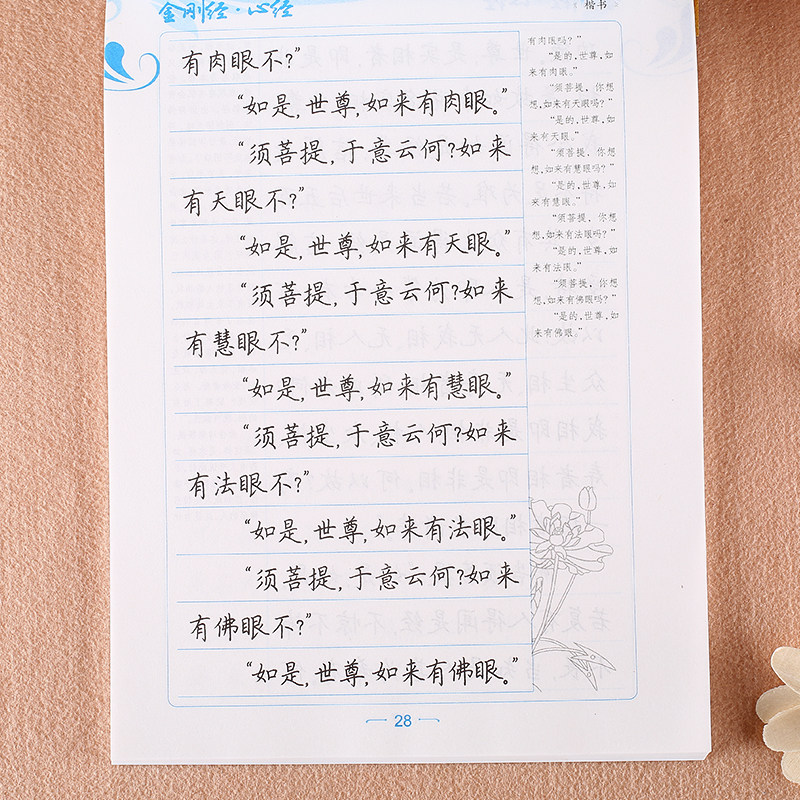 金刚经·心经
楷书
有肉眼不?”
“如是,世尊,如来有肉眼。”
“须菩提,于意云何?如来
有天眼不?”
“如是,世尊,如来有天眼。”
“须菩提,于意云何?如来
有慧眼不?”
“如是,世尊,如来有慧眼。”
“须菩提,于意云何?如来
有法眼不?”
“如是,世尊,如来有法眼。”
“须菩提,于意云何?如来
有佛眼不?”
“如是,世尊,如来有佛眼。”
有肉眼吗?”
“是的,世尊,如
来有肉眼。”
“须菩提,你想
想,如来有天眼吗?”
“是的,世尊,如
来有天眼。”
“须菩提,你想
想,如来有慧眼吗?”
“是的,世尊,如
来有慧眼。”
“须菩提,你想
想,如来有法眼吗?”
“是的,世尊,如
来有法眼。”
“须菩提,你想
想,如来有佛眼吗?”
“是的,世尊,如
来有佛眼。”
28